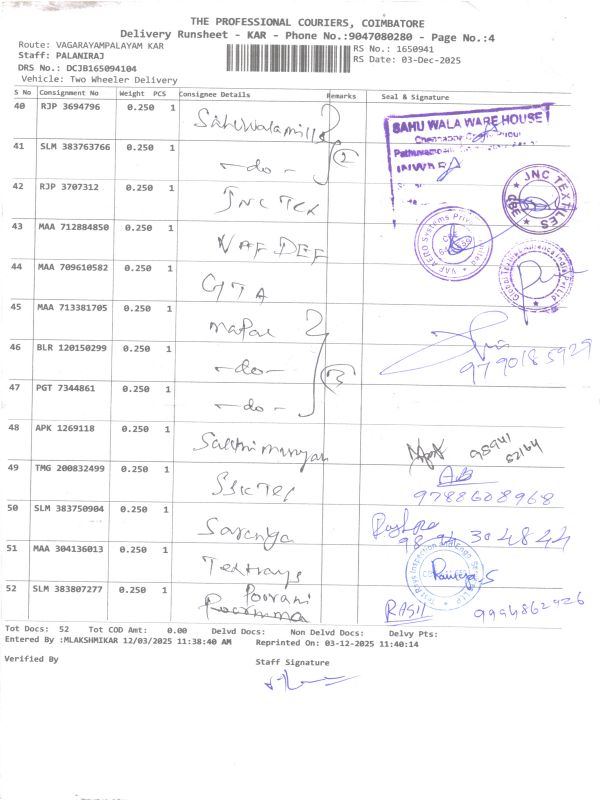 THE PROFESSIONAL COURIERS, COIMBATORE
Delivery Runsheet - KAR - Phone No.:9047080280 - Page No.:4
Route: VAGARAYAMPALAYAM KAR
RS No.: 1650941
Staff: PALANIRAJ
RS Date: 03-Dec-2025
DRS No.: DCJB165094104
Vehicle: Two Wheeler Delivery
S No Consignment No Weight PCS Consignee Details Remarks Seal & Signature
40 RJP 3694796 0.250 1 Sahuwalamills
SAHU WALA WARE HOUSE
INWARD
41 SLM 383763766 0.250 1 -do- 2
42 RJP 3707312 0.250 1 JNC Tex
JNC TEXTILES CBE
43 MAA 712884850 0.250 1 VAF DEF
VAF AERO Systems CBE
44 MAA 709610582 0.250 1 GTA
45 MAA 713381705 0.250 1
46 BLR 120150299 0.250 1 -do- 3
9790185929
47 PGT 7344861 0.250 1 -do-
48 APK 1269118 0.250 1
98941 52164
49 TMG 200832499 0.250 1
9788608968
50 SLM 383750904 0.250 1 Saranya
98 94 304844
51 MAA 304136013 0.250 1 Textrays
52 SLM 383807277 0.250 1 Poorani
9994862926
Tot Docs: 52 Tot COD Amt: 0.00 Delvd Docs: Non Delvd Docs: Delvy Pts:
Entered By :MLAKSHMIKAR 12/03/2025 11:38:40 AM Reprinted On: 03-12-2025 11:40:14
Verified By
Staff Signature